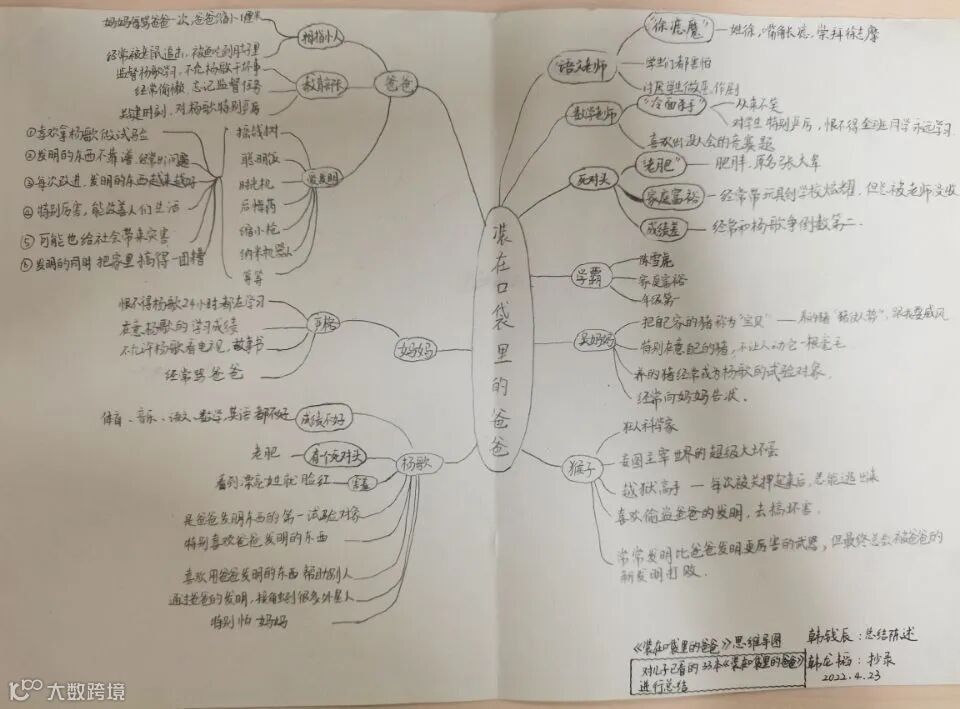 装在口袋里的爸爸
爸爸
拇指小人
妈妈每骂爸爸一次,爸爸缩小1厘米
监督杨歌学习,不允杨歌干坏事
经常偷懒,忘记监督任务
关键时刻,对杨歌特别严厉
爱发明
摇钱树
聪明饭
时光机
后悔药
缩小枪
纳米机器人
等等
①喜欢拿杨歌做试验
②发明的东西不靠谱,经常出问题
③每次改进,发明的东西越来越好
④特别厉害,能改善人们生活
⑤可能也给社会带来灾害
⑥发明的同时把家里搞得一团糟
妈妈
严格
恨不得杨歌24小时都在学习
在意杨歌的学习成绩
不允许杨歌看电视,故事书
经常骂爸爸
杨歌
成绩不好
体育、音乐、语文、数学、英语都不好
有个死对头
老肥
害羞
看到漂亮女生就脸红
是爸爸发明东西的第一试验对象
特别喜欢爸爸发明的东西
喜欢用爸爸发明的东西帮助别人
通过爸爸的发明,接触到很多外星人
特别怕妈妈
语文老师
“徐恶魔”
姓徐,嘴角长痣,崇拜徐志摩
学生们都害怕
讨厌学生做恶作剧
数学老师
“冷面杀手”
从来不笑
对学生特别严厉,恨不得全班同学永远学习
喜欢出没人会的竞赛题
死对头
“老肥”
肥胖,原名张大军
家庭富裕
经常带玩具到学校炫耀,但总被老师没收
成绩差
经常和杨歌争倒数第二
学霸
陈雪亮
家庭富裕
年级第一
吴妈妈
把自己家的猪称为“宝贝”
特别在意自己的猪,不让人动它一根毫毛
养的猪经常成为杨歌的试验对象
经常向妈妈告状
猴子
狂人科学家
妄图主宰世界的超级大坏蛋
越狱高手 — 每次被关押起来后,总能逃出来
喜欢偷盗爸爸的发明,去搞坏害
常常发明比爸爸发明更厉害的武器,但最终总会被爸爸的
新发明打败.
《装在口袋里的爸爸》思维导图
对儿子已看的33本《装在口袋里的爸爸》
进行总结
韩钱辰:总结陈述
:抄录
2022.4.23
大数跨境